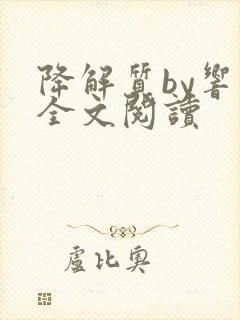 降解質by響
全文閱讀
盧比奧